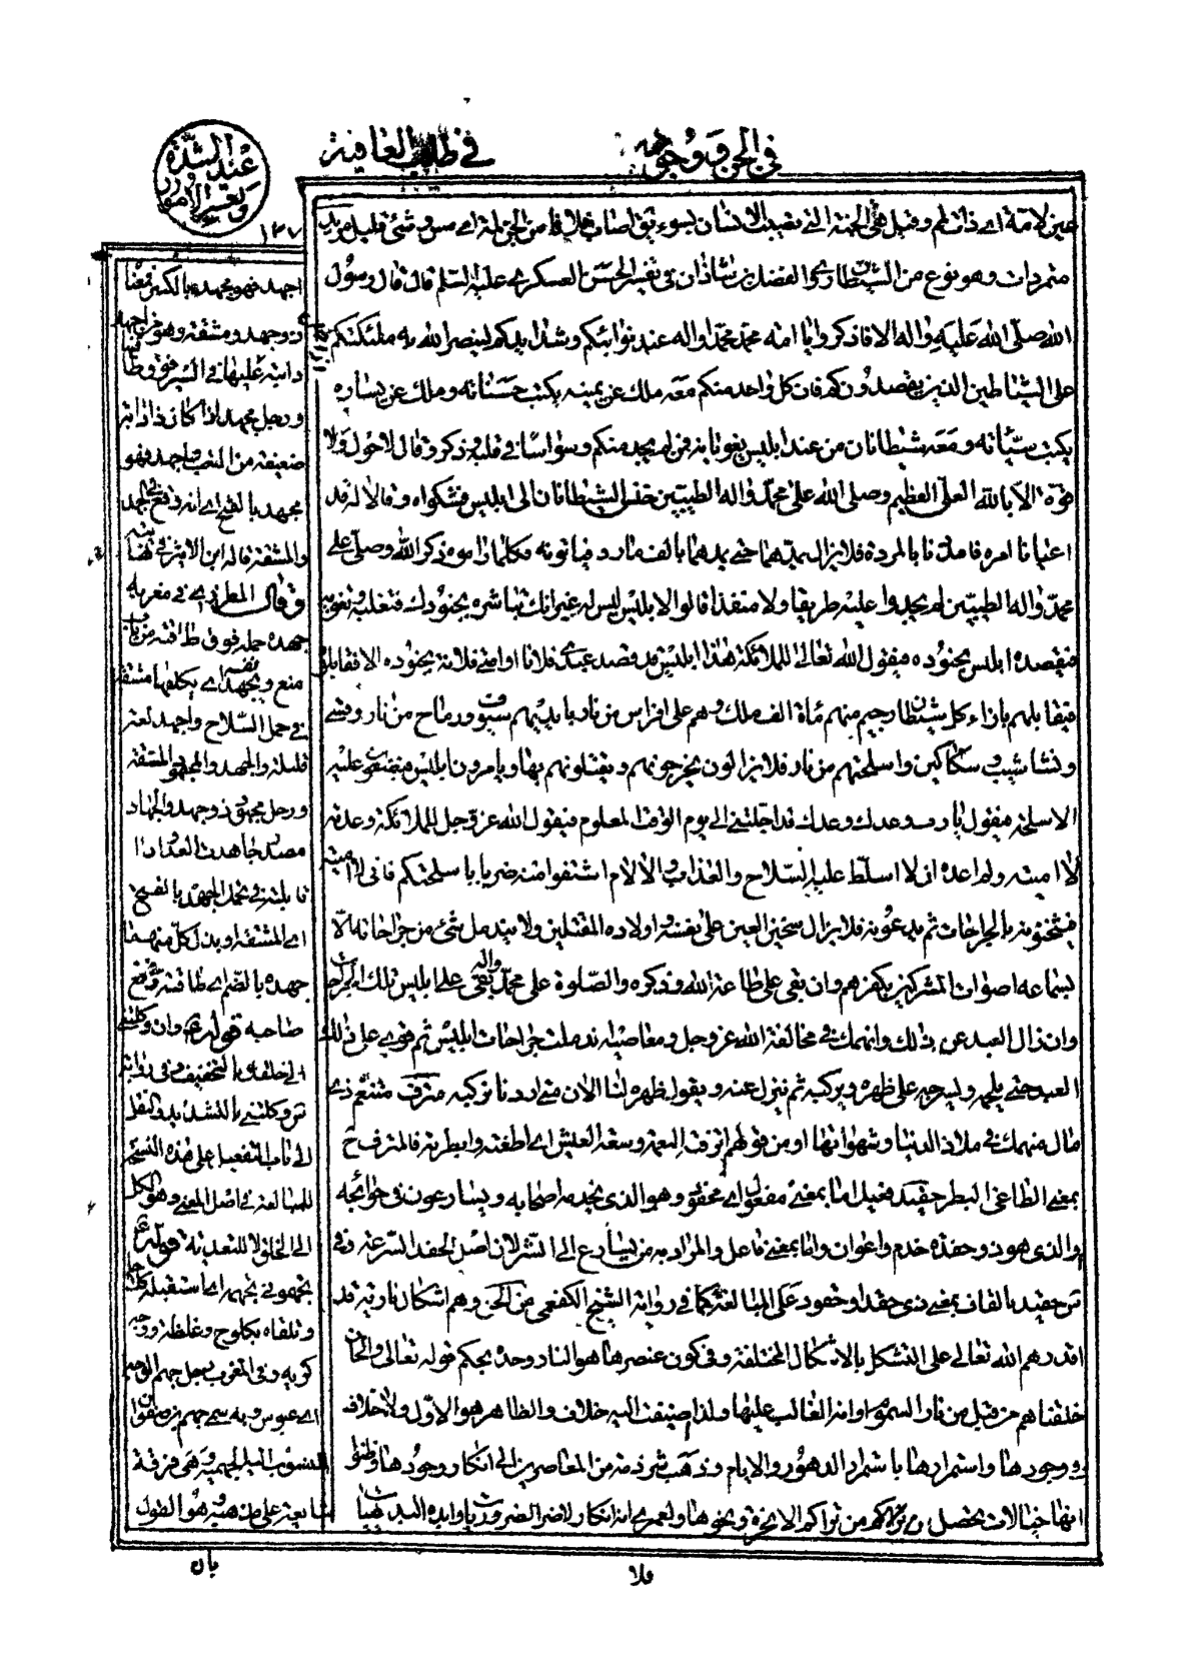 في الجن ووجوده
في طلب العافية
عند الشدة
وتعسر الأمور
١٣٧
عين لامة اي ذات لم وقيل هي العين التي تصيب الانسان بسوء يق اصاب فلانا من الجن لمة اي مس وشئ قليل مريد
متمردات وهو نوع من الشيطان روى الفضل بن شاذان في تفسير الحسن العسكري عليه السلم قال قال رسول
الله صلى الله عليه واله الا فاذكروا يا امة محمد محمدا واله عند نوائبكم وشدايدكم لينصر الله به ملئكتكم
على الشياطين الذين يقصدونكم فان كل واحد منكم معه ملك عن يمينه يكتب حسناته وملك عن يساره
يكتب سيئاته ومعه شيطانان من عند ابليس يغويانه فمن لم يجد منكم وسواسا في قلبه وذكر وقال لا حول ولا
قوة الا بالله العلي العظيم وصلى الله على محمد واله الطيبين خنس الشيطانان الى ابليس فشكواه وقالا له قد
اعيانا امره فامددنا بالمردة فلا يزال يمدهما حتى يمدهما بالف مارد فياتونه فكلما راموه ذكر الله وصلى على
محمد واله الطيبين لم يجدوا عليه طريقا ولا منفذا قالوا لابليس ليس له غيرانك تباشره بجنودك فتغلبه وتغويه
فيقصده ابليس بجنوده فيقول الله تعالى للملائكة هذا ابليس قد قصد عبدي فلانا او امتي فلانة بجنوده الا فقابلوه
فيقابلهم بازاء كل شيطان رجيم منهم مائة الف ملك وهم على افراس من نار بايديهم سيوف ورماح من نار وقسي
ونشاشيب وسكاكين واسلحتهم من نار فلا يزالون يخرجونهم ويقتلونهم بها ويامرون ابليس فيضعون عليه
الاسلحة فيقول يا رب وعدك وعدك قد اجلتني الى يوم الوقت المعلوم فيقول الله عز وجل للملائكة وعدته
لا اميته ولم اعده ان لا اسلط عليه السلاح والعذاب والالام اشتفوا منه ضربا باسلحتكم فاني لا اميته
فيثخنونه بالجراحات ثم يدعونه فلا يزال سخين العين على نفسه واولاده المقتلين ولا يندمل شئ من جراحاته الا
بسماعه اصوات المشركين بكفرهم وان بقي على طاعة الله وذكره والصلوة على محمد واله بقي على ابليس تلك الجراحات
وان زال العبد عن ذلك وانهمك في مخالفة الله عز وجل ومعاصيه اندملت جراحات ابليس ثم قوي على ذلك
العبد حتى يلجمه ويسرجه على ظهره ويركبه ثم ينزل عنه ويقول ظهره لنا الان متى اردنا نركبه مترف متنعم ذي
مال منهمك في ملاذ الدنيا وشهواتها او من قولهم اترفته النعمة وسعة العيش اي اطغته وابطرته فالمترف ح
بمعنى الطاغي البطر حفيد فعيل اما بمعنى مفعول اي محفود وهو الذي يخدمه اصحابه ويسارعون في حوائجه
والذي هو ذو حفدة خدم واعوان واما بمعنى فاعل والمراد به من يسارع الى الشر لان اصل الحفد السرعة وفي
ش حقيد بالقاف بمعنى ذي حقد او حقود على المبالغة كما في رواية الشيخ الكفعمي من الجن وهم اشكال نارية قد
اقدرهم الله تعالى على التشكل بالاشكال المختلفة وفي كون عنصرها هو النار وحده بحكم قوله تعالى والجان
خلقناهم من قبل من نار السموم او انه الغالب عليها ولذا اضيفت اليه خلاف والظاهر هو الاول ولا خلاف
ووجودها واستمرارها باستمرار الدهور والايام وذهب شرذمة من المعاصرين الى انكار وجودها وظنوا
انها خيالات تحصل من تراكم الابخرة ونحوها ولعمري انه انكار لاضر الضروريات وابده البديهيات
فلا
اجهد فهو مجهد بالكسر بمعنا
ذو جهد ومشقة وهو من اجهد
دابته عليها في السير فوق وطا
ورجل مجهد اذا كان ذا دابة
ضعيفة من التعب فاجهد فهو
مجهد بالفتح اي انه وقع في الجهد
والمشقة قاله ابن الاثير في نهايته
وقال المطرزي في مغربه
جهده حمله فوق طاقته من باب
منع ويجهد نفسه اي يكلفها مشقة
في حمل السلاح واجهد لغة
قليلة والجهد والمجهود المشقة
ورجل مجهود ذو جهد والجهاد
مصدر جاهدت العدو اذا
قابلته في تحمل الجهد بالفتح
اي المشقة او بذل كل منهما
جهده بالضم اي طاقته في دفع
صاحبه قوله وان وكلتني
الى خلقك بالتخفيف وفي رواية
ش وكلتني بالتشديد والنقل
الى باب التفعيل على هذه النسخة
للمبالغة في اصل المعنى وهو الكل
الى الخلق لا للتعدية قوله
تجهموني تجهمه اي استقبله
وتلقاه بكلوح وغلظة ووجه
كريه وفي المغرب رجل جهم الوجه
اي عبوس وبه سمي جهم بن صفوان
المنسوب اليه الجهمية وهي فرقة
شايعته على مذهبه وهو القول
بان